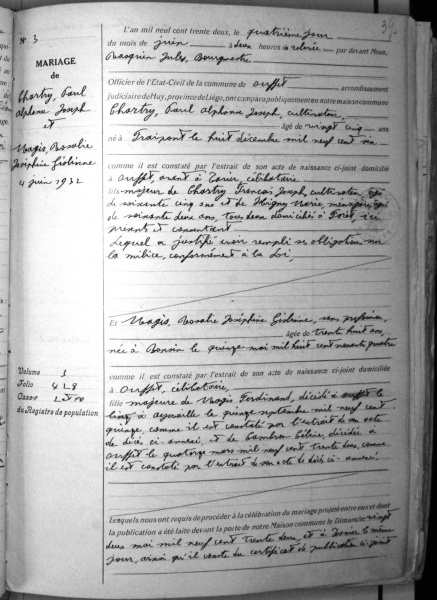 39
N° 3
MARIAGE
de
Charty, Paul
Alphonse Joseph
et
Magis, Rosalie
Joséphine Gislinne
4 juin 1932
Volume 3
Folio 428
Casos
du Registre de population
L'an mil neuf cent trente deux, le quatrième jour
du mois de juin à deux heures de relevée par devant Nous,
Masquien Jules, Bourgmestre
Officier de l'Etat-Civil de la commune de Ouffet arrondissement
judiciaire de Huy, province de Liège, ont comparu publiquement en notre maison commune
Charty, Paul Alphonse Joseph, cultivateur,
âgé de vingt cinq ans
né à Fraipont le huit décembre mil neuf cent six
comme il est constaté par l'extrait de son acte de naissance ci-joint domicilié
à Ouffet, avant à Xhoris, célibataire
fils majeur de Charty François Joseph, cultivateur, âgé
de soixante cinq ans et de Marie, ménagère, âgée
de soixante deux ans, tous deux domiciliés à Forêt, ici
présents et consentant
Lequel a justifié avoir rempli ses obligations sur
la milice, conformément à la loi,
Et Magis, Rosalie Joséphine Gislinne, sans profession,
âgée de trente huit ans,
née à Bonsin le quinze mai mil huit cent nonante quatre
comme il est constaté par l'extrait de son acte de naissance ci-joint domiciliée
à Ouffet, célibataire,
fille majeure de Magis Ferdinand, décédé à
à Aywaille le quinze septembre mil neuf cent
quinze, comme il est constaté par l'extrait de son acte
de décès ci-annexé, et de Bambron Célinie, décédée à
Ouffet le quatorze mars mil neuf cent trente deux, comme
il est constaté par l'extrait de son acte de décès ci-annexé.
Lesquels nous ont requis de procéder à la célébration du mariage projeté entre eux et dont
la publication a été faite devant la porte de notre Maison commune le Dimanche vingt
deux mai mil neuf cent trente deux, et à Xhoris le même
jour, ainsi qu'il conste du certificat de publication ci-joint